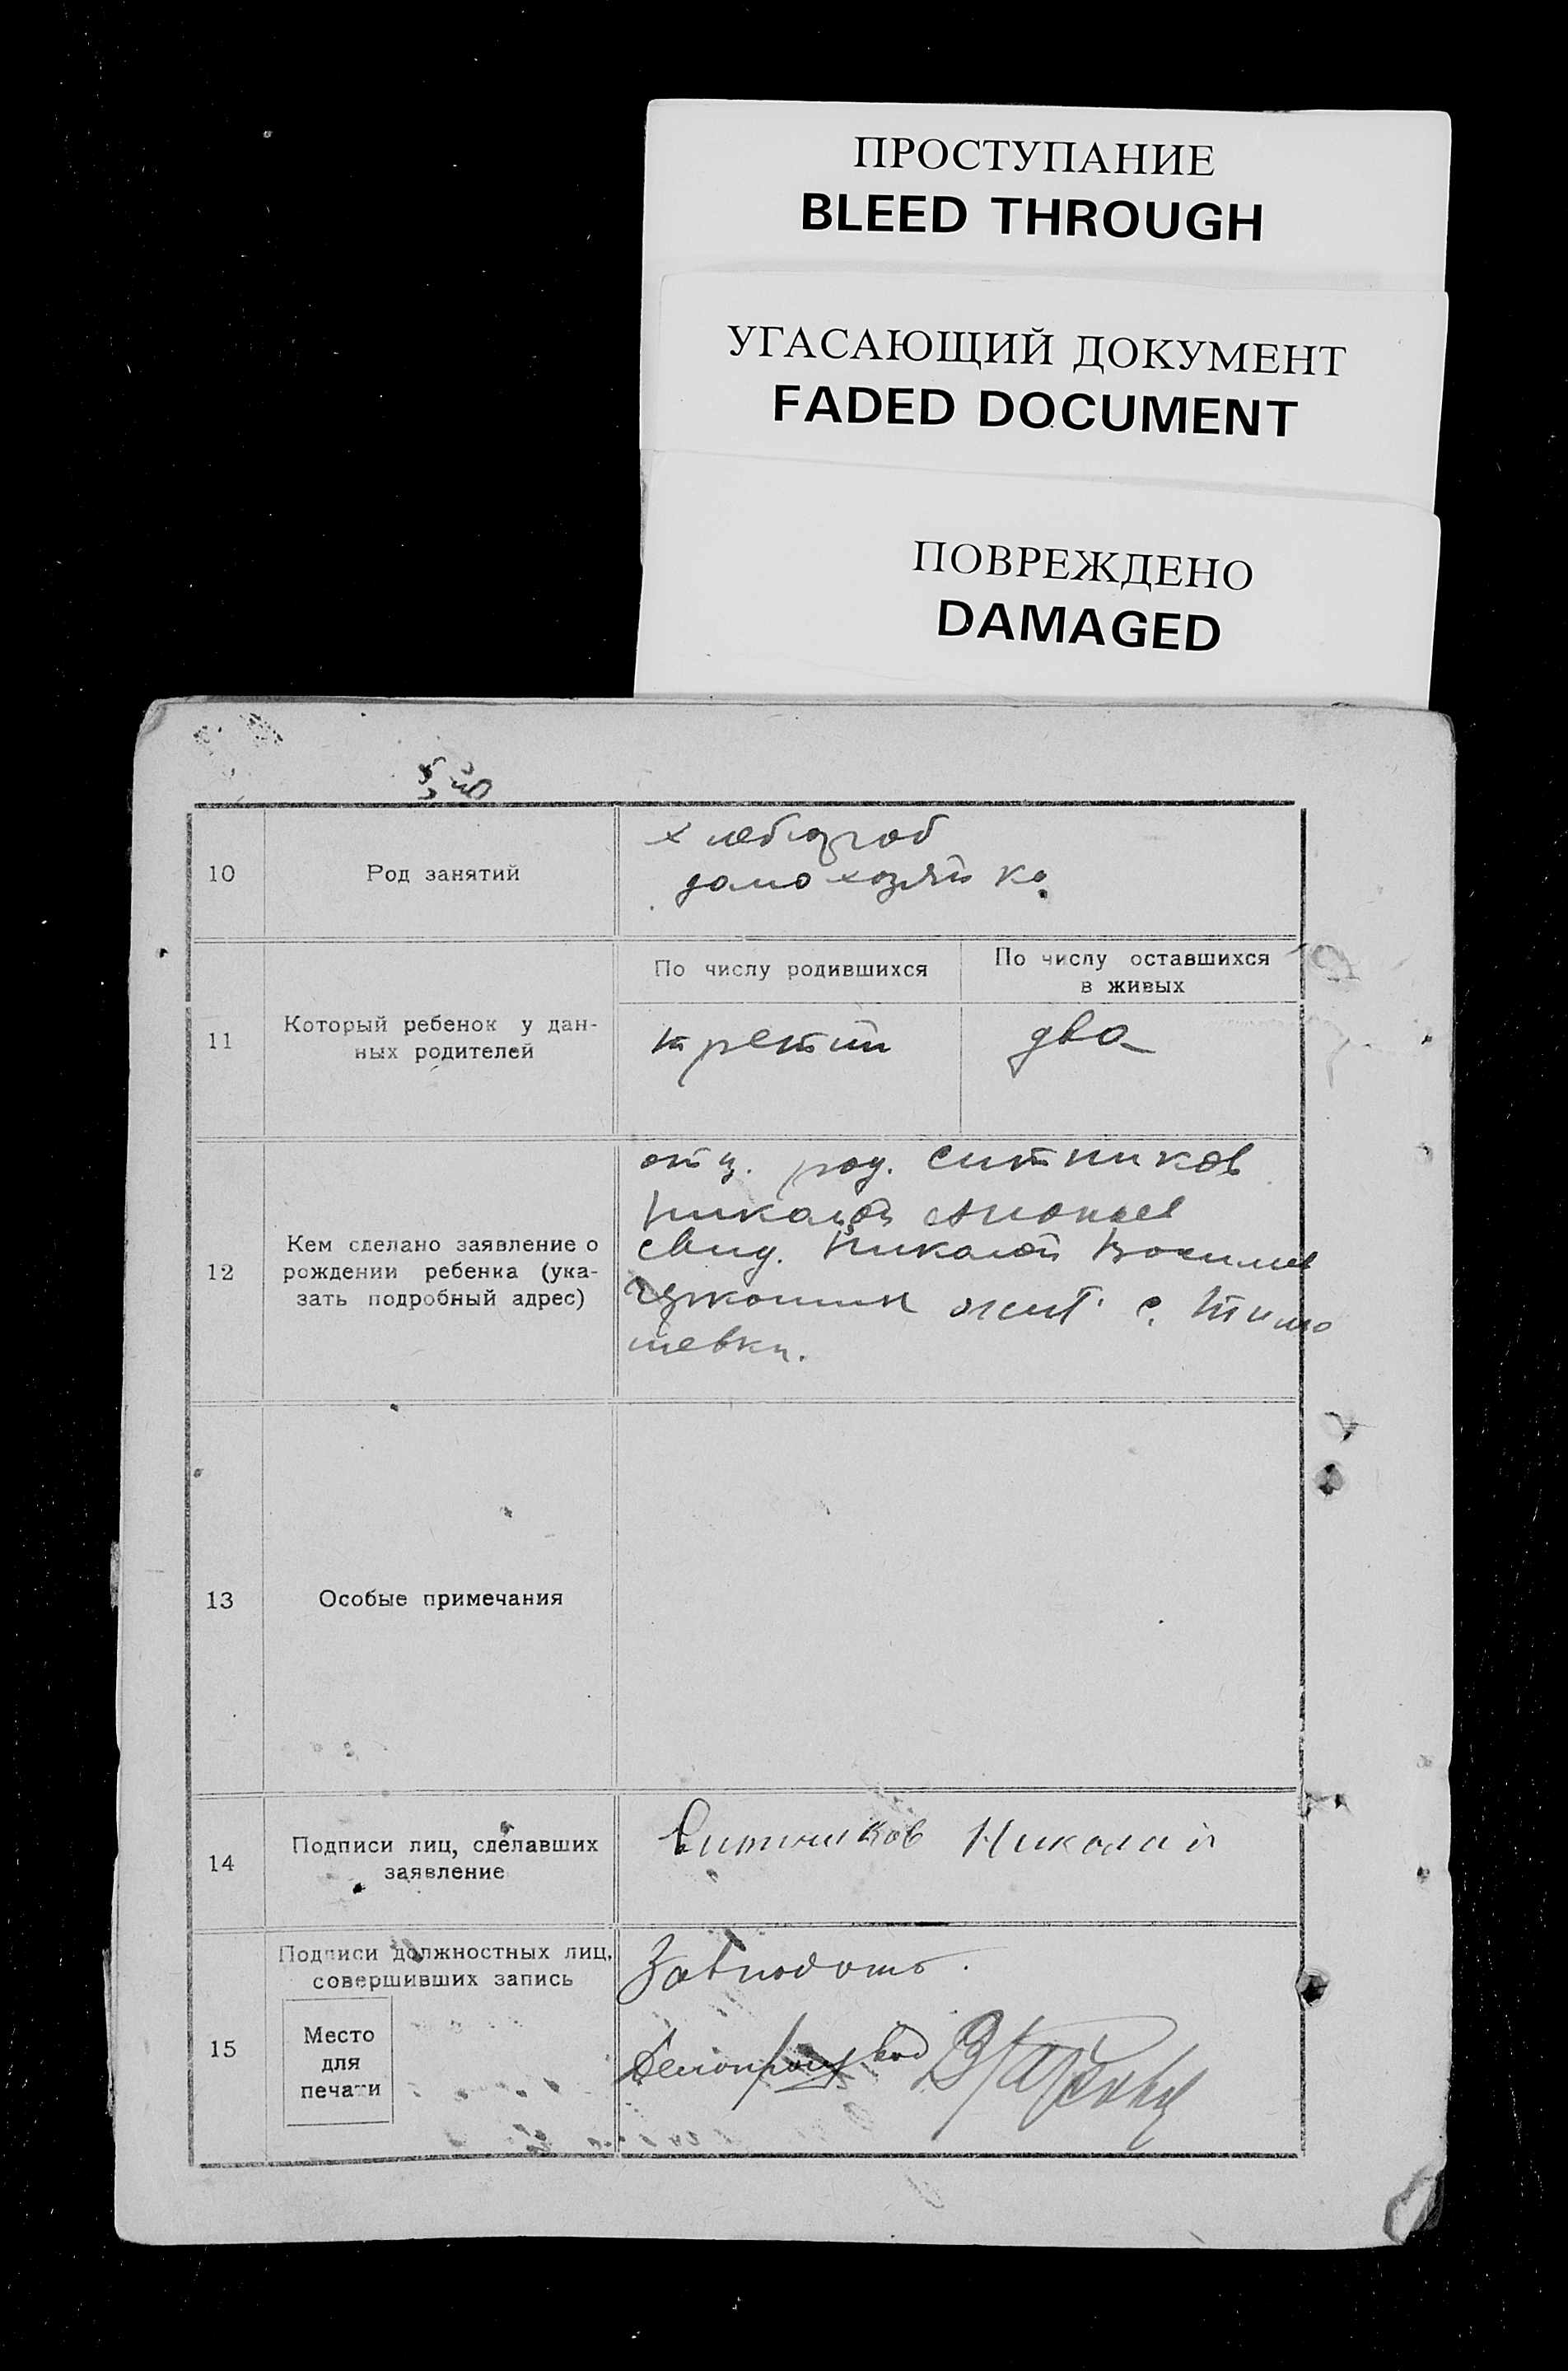 ПРОСТУПАНИЕ
BLEED THROUGH
УГАСАЮЩИЙ ДОКУМЕНТ
FADED DOCUMENT
ПОВРЕЖДЕНО
DAMAGED
10
Род занятий
хлебороб
домохозяйка
11
Который ребенок у дан-
ных родителей
По числу родившихся
По числу оставшихся
в живых
третий
два
12
Кем сделано заявление о
рождении ребенка (ука-
зать подробный адрес)
отц. род. Ситников
Николай
свид. Николай
жит. с. Тимо
шевки.
13
Особые примечания
14
Подписи лиц, сделавших
заявление
Ситников Николай
15
Подписи должностных лиц,
совершивших запись
Место
для
печати